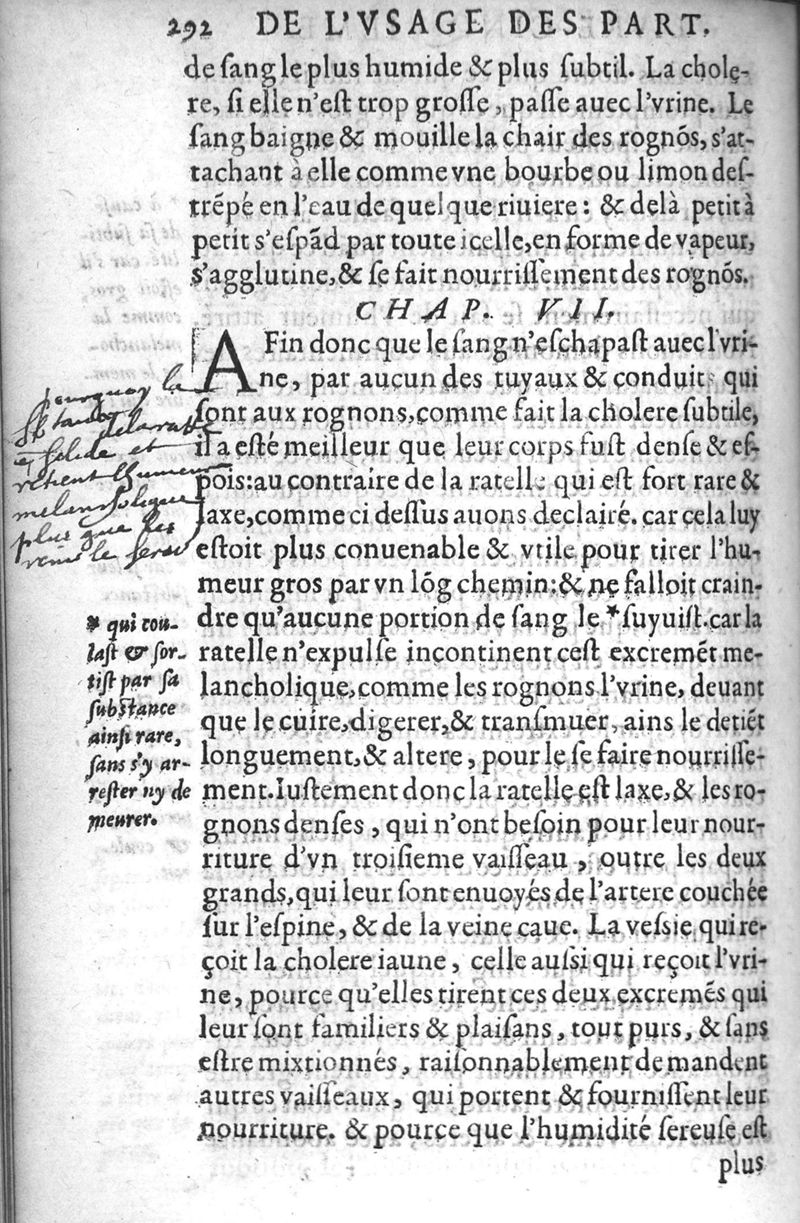 292 DE L'VSAGE DES PART.
de ſang le plus humide & plus ſubtil. La cholę-
re, ſi elle n'eſt trop groſſe, paſſe auec l'vrine. Le
ſang baigne & mouille la chair des rognõs, s'at-
tachant à elle comme vne bourbe ou limon deſ-
trẽpé en l'eau de quelque riuiere: & delà petit à
petit s'eſpãd par toute icelle, en forme de vapeur,
s'agglutine, & ſe fait nourriſſement des rognõs.
CHAP. VII.
AFin donc que le ſang n'eſchapaſt auec l'vri-
ne, par aucun des tuyaux & conduits qui
ſont aux rognons, comme fait la cholere ſubtile,
il a eſté meilleur que leur corps fuſt denſe & eſ-
pois: au contraire de la ratelle qui eſt fort rare &
laxe, comme ci deſſus auons declairé. car cela luy
eſtoit plus conuenable & vtile pour tirer l'hu-
meur gros par vn lõg chemin: & ne falloit crain-
dre qu'aucune portion de ſang le *ſuyuiſt. car la
ratelle n'expulſe incontinent ceſt excremẽt me-
lancholique, comme les rognons l'vrine, deuant
que le cuire, digerer, & tranſmuer, ains le detiẽt
longuement, & altere, pour le ſe faire nourriſſe-
ment. Iuſtement donc la ratelle eſt laxe, & les ro-
gnons denſes, qui n'ont beſoin pour leur nour-
riture d'vn troiſieme vaiſſeau, outre les deux
grands, qui leur ſont enuoyés de l'artere couchée
ſur l'eſpine, & de la veine caue. La veſsie qui re-
çoit la cholere iaune, celle auſsi qui reçoit l'vri-
ne, pource qu'elles tirent ces deux excremẽs qui
leur ſont familiers & plaiſans, tout purs, & ſans
eſtre mixtionnés, raiſonnablement demandent
autres vaiſſeaux, qui portent & fourniſſent leur
nourriture. & pource que l'humidité ſereuſe eſt
plus
pourquoy la
de la ratte
ſolide et
retient lhumeur
melancholique
plus que les
* qui cou-
laſt & ſor-
tiſt par ſa
ſubſtance
ainſi rare,
ſans s'y ar-
reſter ny de
meurer.